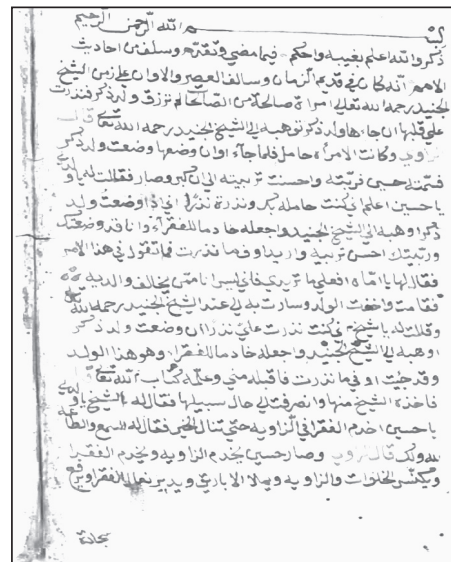 بسم الله الرحمن الرحيم
ذكر والله اعلم بغيبه واحكم فيما مضى وتقدم وسلف من احاديث
الامم انه كان في قديم الزمان وسالف العصر والاوان على زمن الشيخ
الجنيد رحمه الله تعالى امراة صالحة من الصالحا لم ترزق ولد ذكر فنذرت
على قلبها ان جاءها ولد ذكر توهبه الى الشيخ الجنيد رحمه الله تعالى قال
الراوي وكانت الامرأه حامل فلما جاء اوان وضعها وضعت ولد ذكر
فسمته حسين فربته واحسنت تربيته الى ان كبر وصار فقالت له يا ولدي
يا حسين اعلم اني كنت حامله بكر ونذرة نذرا اني اذا وضعت ولد
ذكرا وهبه الى الشيخ الجنيد واجعله خادما للفقرآء وانا قد وضعتك
وربيتك احسن تربيه واريد اوف ما نذرت فما تقول في هذا الامر
فقال لها يا اماه افعلي ما تريدي فاني ليس انا من يخالف والديه
فقامت واخذت الولد وسارت به الى عند الشيخ الجنيد رحمه الله
وقالت له يا شيخ اني كنت نذرت علي نذرا ان وضعت ولد ذكر
اوهبه الى الشيخ الجنيد واجعله خادما للفقرا وهو هذا الولد
وقد جيت اوفي ما نذرت فاقبله مني وعلمه كتاب الله تعالى
فاخذه الشيخ منها وانصرفت الى حال سبيلها فقال له الشيخ يا ولدي
يا حسين اخدم الفقرا في الزاويه حتى تنال الخير فقال له السمع والطاعه
لله ولك قال الراوي وصار حسين يخدم الزاويه ويخدم الفقرا
ويكنس الخلوات والزاويه ويملا الاباريق ويدير نعال الفقرا ويرفع